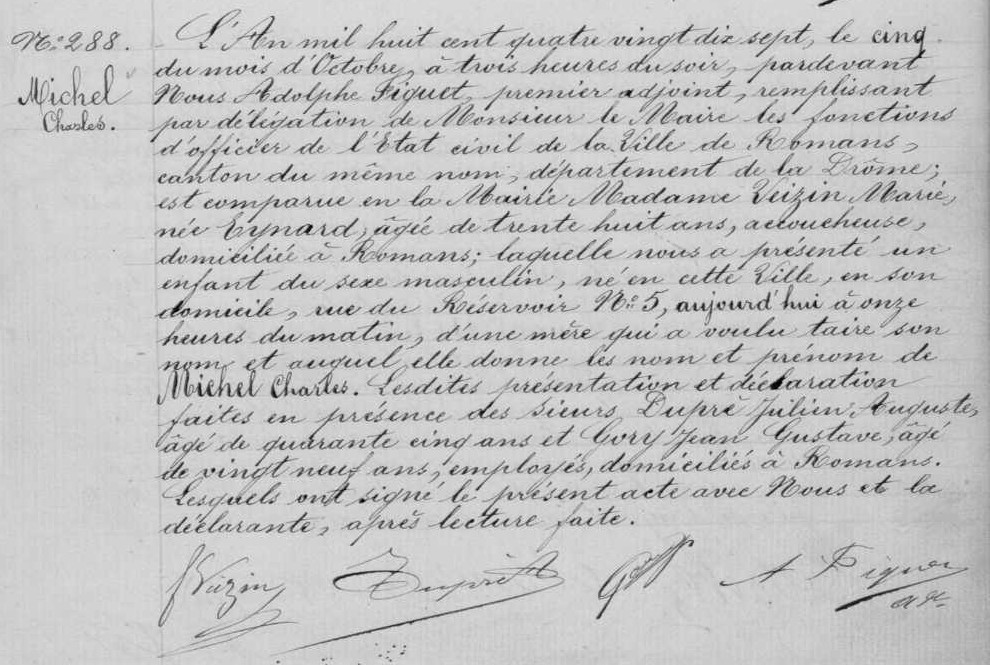 N° 288.
Michel
Charles.
L'An mil huit cent quatre vingt dix sept, le cinq
du mois d'Octobre, à trois heures du soir, pardevant
Nous Adolphe Figuet, premier adjoint, remplissant
par délégation de Monsieur le Maire les fonctions
d'officier de l'Etat civil de la Ville de Romans,
canton du même nom, département de la Drôme;
est comparue en la Mairie Madame Veizin Marie,
née Eynard, âgée de trente huit ans, accoucheuse,
domiciliée à Romans; laquelle nous a présenté un
enfant du sexe masculin, né en cette Ville, en son
domicile, rue du Réservoir N° 5, aujourd'hui à onze
heures du matin, d'une mère qui a voulu taire son
nom et auquel elle donne les nom et prénom de
Michel Charles. Lesdites présentation et déclaration
faites en présence des sieurs Dupré Julien Auguste,
âgé de quarante cinq ans et Gory Jean Gustave, âgé
de vingt neuf ans, employés, domiciliés à Romans.
Lesquels ont signé le présent acte avec Nous et la
déclarante, après lecture faite.
Dupré A Figuet